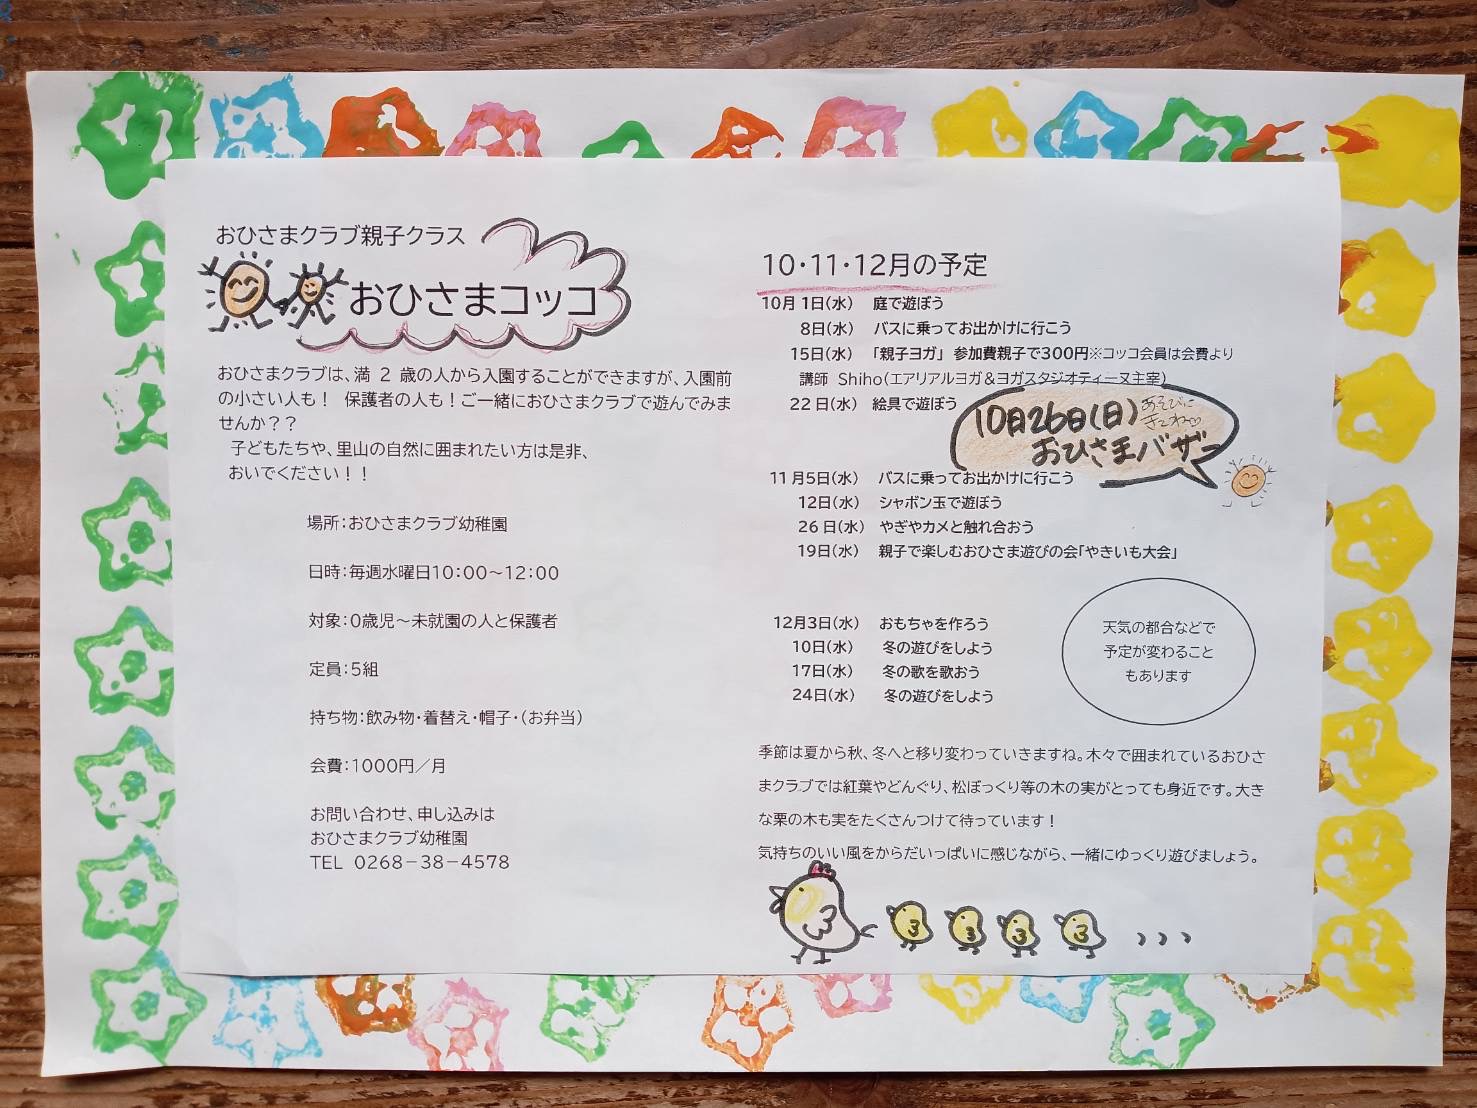 おひさまクラブ親子クラス
おひさまコッコ
おひさまクラブは、満 2 歳の人から入園することができますが、入園前
の小さい人も！ 保護者の人も！ご一緒におひさまクラブで遊んでみま
せんか？？
子どもたちや、里山の自然に囲まれたい方は是非、
おいでください！！
場所：おひさまクラブ幼稚園
日時：毎週水曜日10：00～12：00
対象：0歳児～未就園の人と保護者
定員：5組
持ち物：飲み物・着替え・帽子・（お弁当）
会費：1000円／月
お問い合わせ、申し込みは
おひさまクラブ幼稚園
TEL 0268－38－4578
10・11・12月の予定
10月 1日（水） 庭で遊ぼう
8日（水） バスに乗ってお出かけに行こう
15日（水） 「親子ヨガ」 参加費親子で300円※コッコ会員は会費より
講師 Shiho（エアリアルヨガ＆ヨガスタジオティーヌ主宰）
22日（水） 絵具で遊ぼう
10月26日（日）
あそびに
きてね♡
おひさまバザー
11月5日（水） バスに乗ってお出かけに行こう
12日（水） シャボン玉で遊ぼう
26日（水） やぎやカメと触れ合おう
19日（水） 親子で楽しむおひさま遊びの会「やきいも大会」
12月3日（水） おもちゃを作ろう
10日（水） 冬の遊びをしよう
17日（水） 冬の歌を歌おう
24日（水） 冬の遊びをしよう
天気の都合などで
予定が変わること
もあります
季節は夏から秋、冬へと移り変わっていきますね。木々で囲まれているおひさ
まクラブでは紅葉やどんぐり、松ぼっくり等の木の実がとっても身近です。大き
な栗の木も実をたくさんつけて待っています！
気持ちのいい風をからだいっぱいに感じながら、一緒にゆっくり遊びましょう。